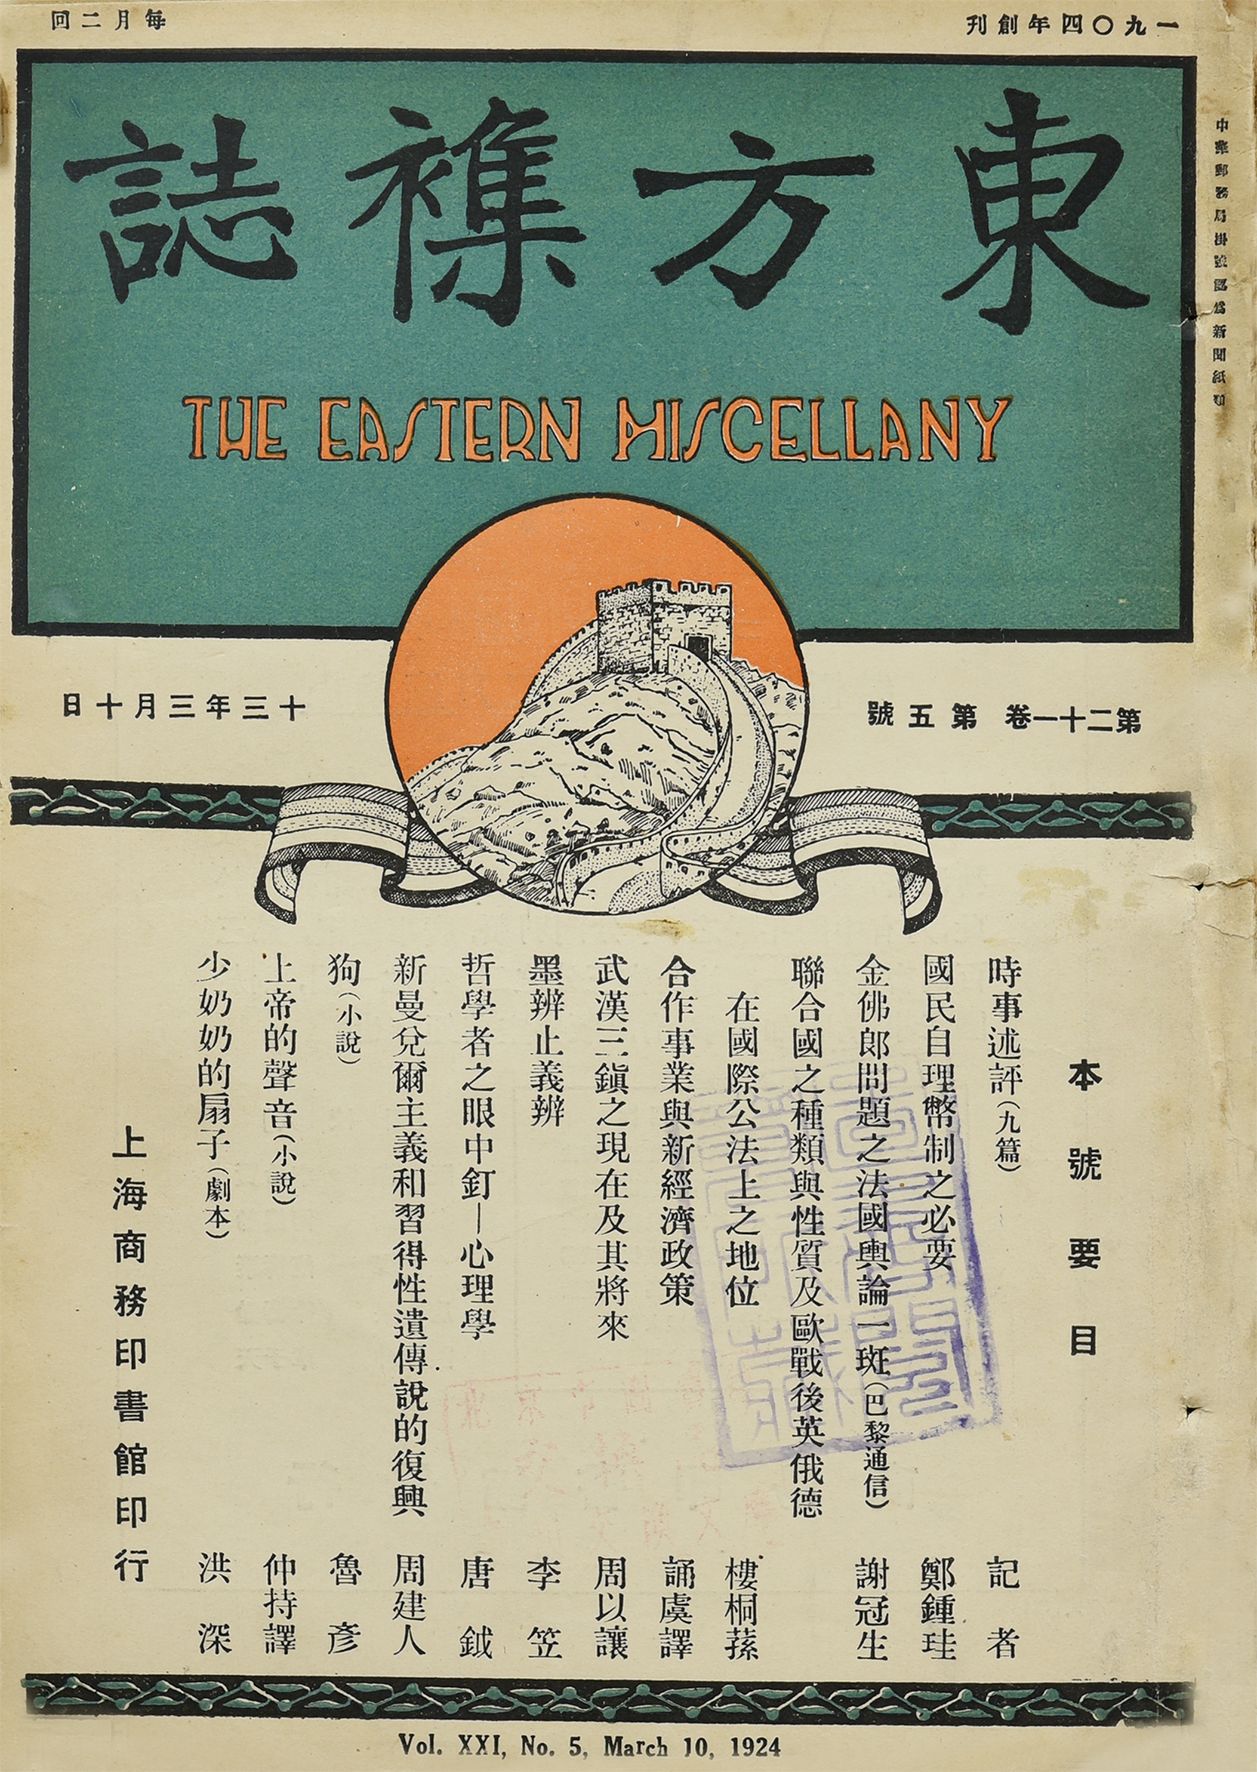 一九〇四年創刊
每月二回
中華郵務局掛號認爲新聞紙類
東方雜誌
THE EASTERN MISCELLANY
第二十一卷 第五號
十三年三月十日
本號要目
時事述評(九篇) 記者
國民自理幣制之必要 鄭鍾珪
金佛郎問題之法國輿論一斑(巴黎通信) 謝冠生
聯合國之種類與性質及歐戰後英俄德
在國際公法上之地位 樓桐蓀
合作事業與新經濟政策 誦虞譯
武漢三鎮之現在及其將來 周以讓
墨辨止義辨 李笠
哲學者之眼中釘—心理學 唐鉞
新曼兌爾主義和習得性遺傳說的復興 周建人
狗(小說) 魯彥
上帝的聲音(小說) 仲持譯
少奶奶的扇子(劇本) 洪深
上海商務印書館印行
Vol. XXI, No. 5, March 10, 1924